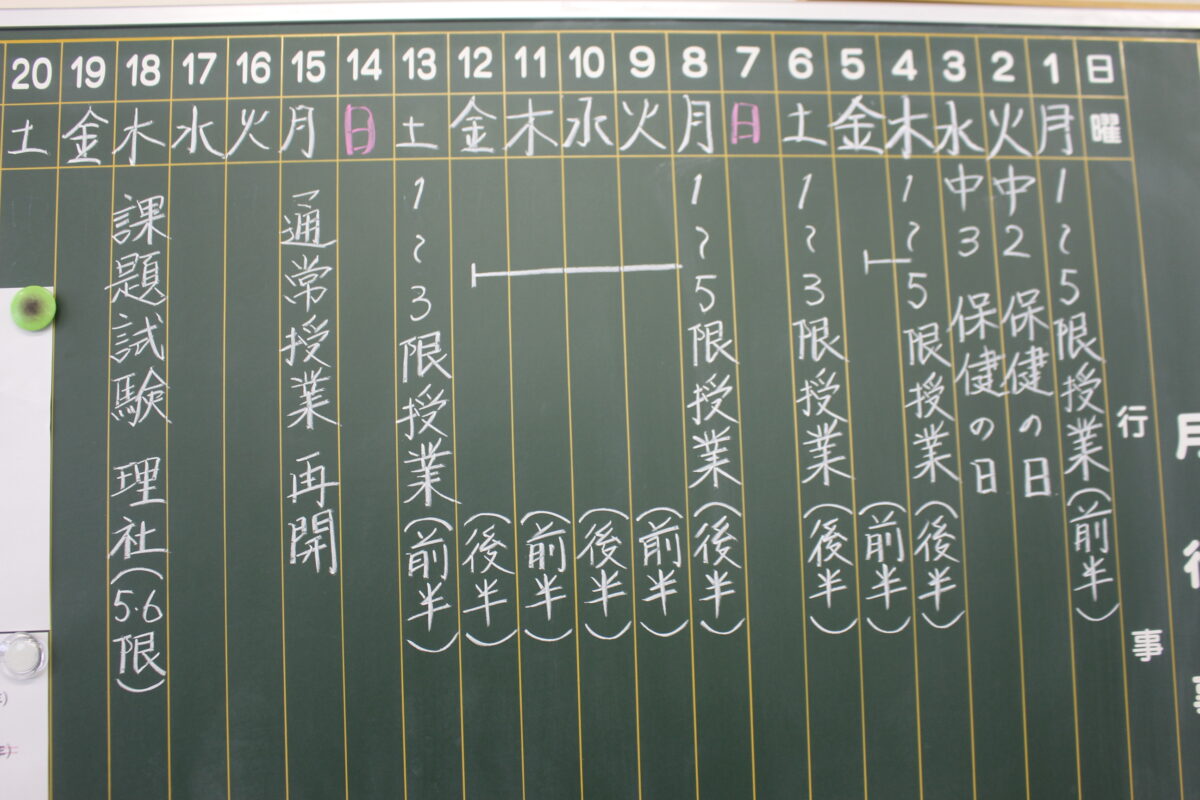 日 1 2 3 4 5 6 7 8 9 10 11 12 13 14 15 16 17 18 19 20
曜 月 火 水 木 金 土 日 月 火 水 木 金 土 日 月 火 水 木 金 土
行事
1〜5限授業(前半)
中2 保健の日
中3 保健の日
1〜5限授業(後半)
(前半)
1〜3限授業(後半)
1〜5限授業(後半)
(前半)
(後半)
(前半)
(後半)
1〜3限授業(前半)
通常授業 再開
課題試験 理社(5・6限)